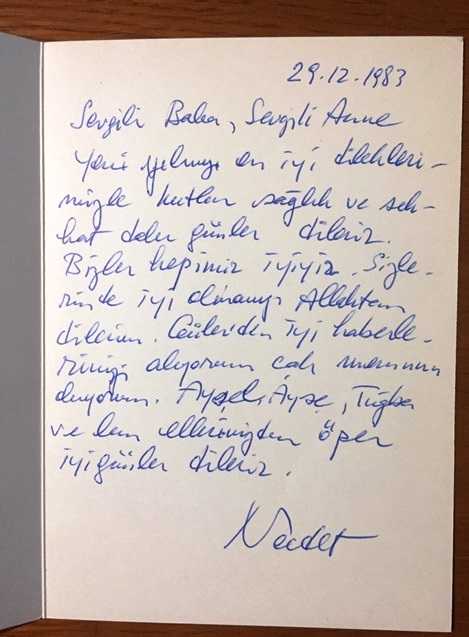 29.12.1983
Sevgili Baba, Sevgili Anne
Yeni yılınızı en iyi dilekleri-
mizle kutlar sağlık ve sıh-
hat dolu günler dileriz.
Bizler hepimiz iyiyiz. Sizle-
rinde iyi olmanızı Allahtan
dilerim. Güler'den iyi haberle-
rinizi alıyorum çok memnun
oluyorum. Ayşel, Ayşe, Tuğba
ve ben ellerinizden öper
iyi günler dileriz.
Necdet